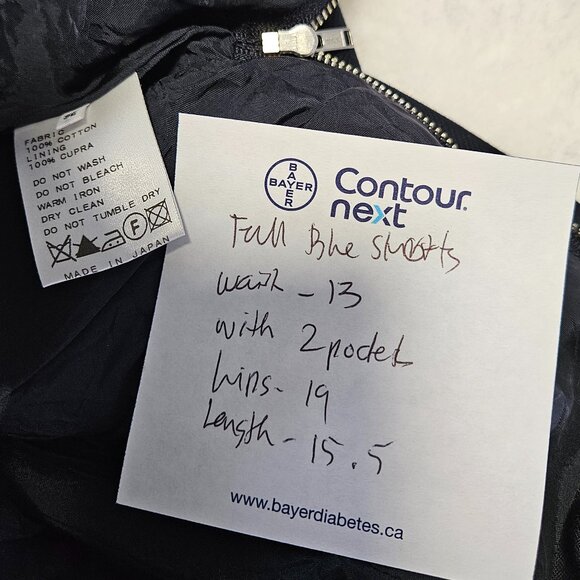 FABRIC
100% COTTON
LINING
100% CUPRA
DO NOT WASH
DO NOT BLEACH
WARM IRON
DRY CLEAN
DO NOT TUMBLE DRY
F
MADE IN JAPAN
BAYER
BAYER
Contour
next
Full Blue Shorts
waist - 13
with 2 pocket
hips - 19
Length - 15.5
www.bayerdiabetes.ca